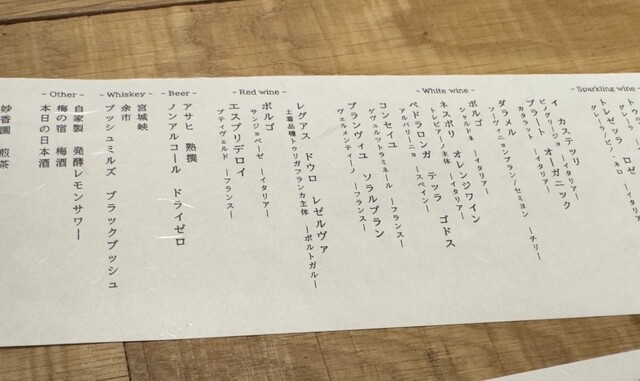 - Sparkling wine -
トレゼッラ ロゼ
グレーラ・ピノ・ネロ ーイタリアー
- White wine -
イ カステッリ
ピノグリージョ ーイタリアー
プラート オーガニック
カタラット ーイタリアー
ダラメル
ソーヴィニョンブラン/セミヨン ーチリー
ボルゴ
シャルドネ ーイタリアー
ネスポリ オレンジワイン
トレビアーノ主体 ーイタリアー
ペドラロンガ テッラ ゴドス
アルバリーニョ ースペインー
コンセイユ
ゲヴェルツトラミネール ーフランスー
ブランヴィユ ソラルブラン
ヴェルメンティーノ ーフランスー
- Red wine -
レグアス ドウロ レゼルヴァ
土着品種トゥリガフランカ主体 ーポルトガルー
ボルゴ
サンジョベーゼ ーイタリアー
エスプリデロイ
プティヴェルド ーフランスー
- Beer -
アサヒ 熟撰
ノンアルコール ドライゼロ
- Whiskey -
宮城峡
余市
ブッシュミルズ ブラックブッシュ
- Other -
自家製 発酵レモンサワー
梅の宿 梅酒
本日の日本酒
妙香園 煎茶